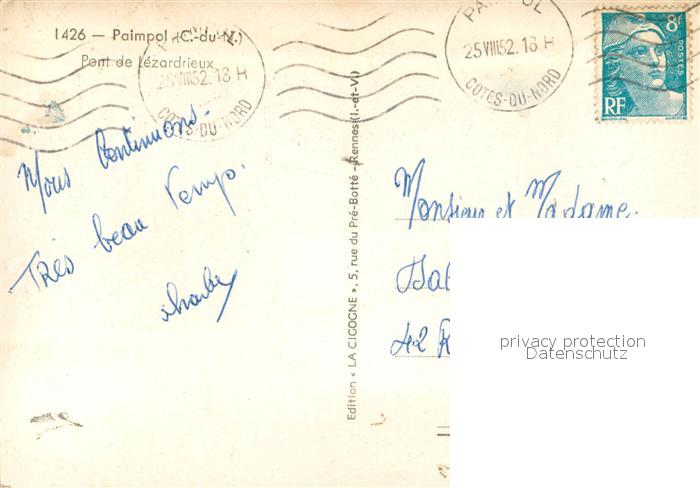 1426 — Paimpol (C.-du-N.)
Pont de Lézardrieux
25 VIII 52. 18 H
COTES-DU-NORD
PAIMPOL
25 VIII 52. 18 H
COTES-DU-NORD
8F
POSTES
RF
Nous Continuons.
Très beau Temps.
Edition « LA CIGOGNE », 5, rue du Pré-Botté - Rennes (I.-et-V.)
Monsieur et Madame.
42 R
privacy protection
Datenschutz